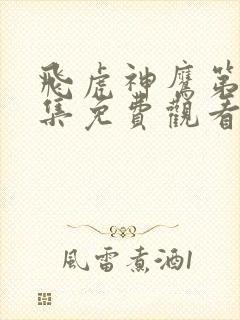 飛虎神鷹第
集免費觀看
風雷煮酒1